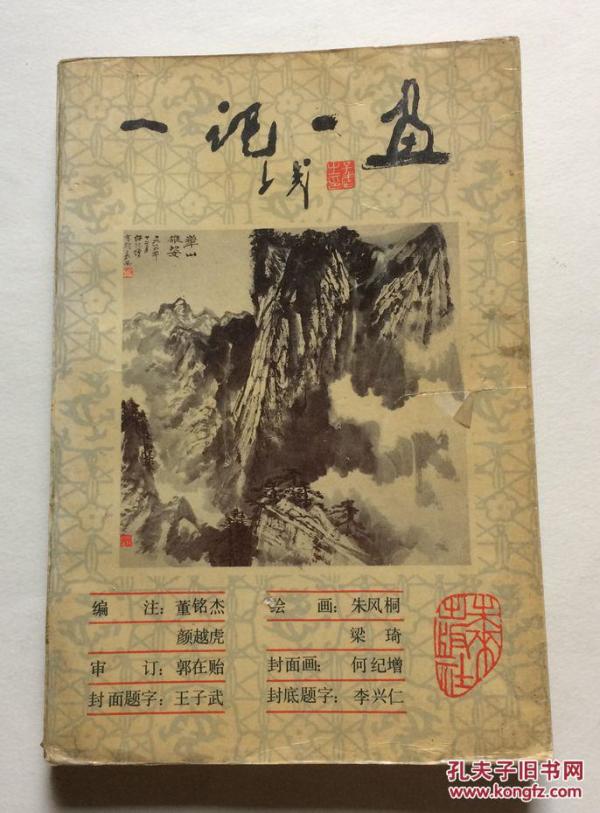 一记一画
子武
华山
雄姿
编 注：董铭杰
颜越虎
审 订：郭在贻
封面题字：王子武
绘 画：朱风桐
梁 琦
封面画：何纪增
封底题字：李兴仁
孔夫子旧书网
www.kongfz.com